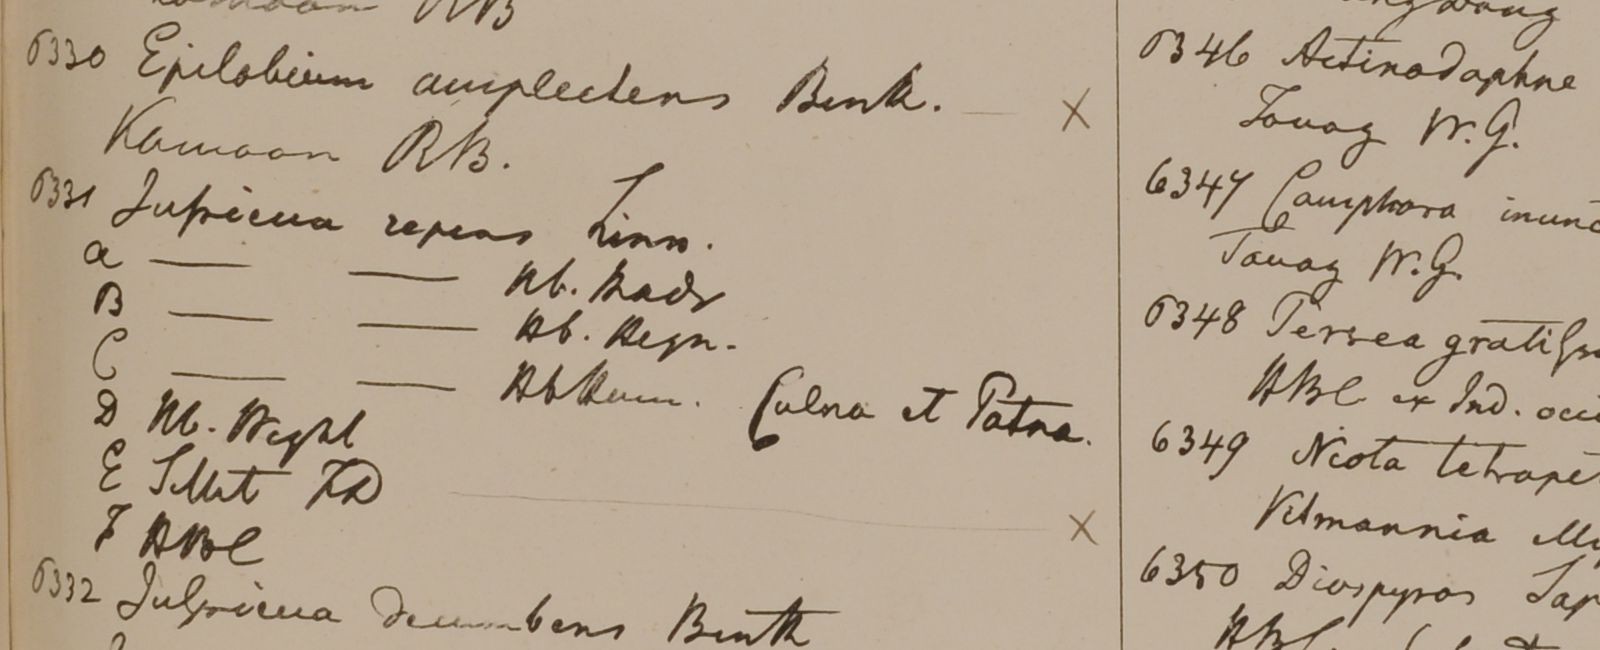 Kamaon RB
6330 Epilobium amplectens Benth.
Kamaon RB.
6331 Jussieua repens Linn.
a — — Hb. Madr
B — — Hb. Heyn.
C — — Hb Ham. Culna et Patna.
D Hb. Wight
E Sillet FD
F HBC
6332 Jussieua decumbens Benth
6346 Actinodaphne
Tavoy W.G.
6347 Camphora inund
Tavoy W.G.
6348 Persea gratiss
HBC ex Ind. occi
6349 Niota tetrapet
Vitmannia
6350 Diospyros Sap
HBC